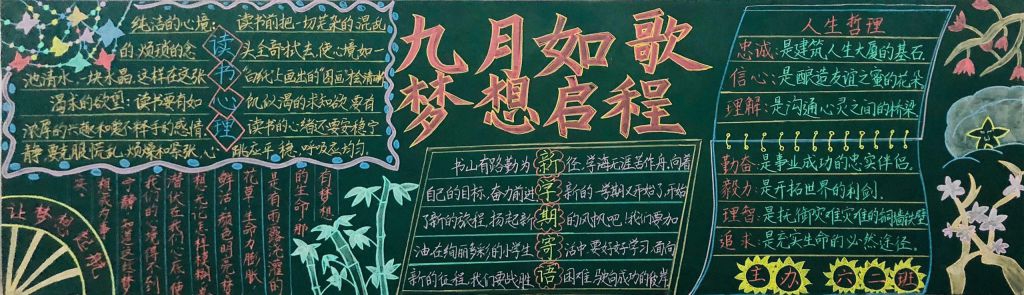 九月如歌
梦想启程
读书心理
纯洁的心境:读书前把一切芜杂的混乱
的烦琐的念头全部拭去使心境如一
池清水、一块水晶.这样在这张白纸上画出的图画清晰
渴求的欲望:读书要有如饥似渴的求知欲.要有
浓厚的兴趣和爱不释手的感情 读书的心绪还要安稳宁
静.要克服慌乱.烦燥和紧张.心跳应平稳.呼吸应均匀.
让梦想起航
有梦想
的生命.那
是有雨露浇灌的
花草.生命力膨胀.
鲜活.颜色明亮.梦
想.无论怎样模糊.总
潜伏在我们心底.使
我们的心境得不到
宁静.
想成为事
实.
新学期寄语
书山有路勤为径.学海无涯苦作舟.向着
自己的目标.奋力前进.新的一学期又开始了.开始
了新的旅程.扬起新的风帆吧!我们要加
油.在绚丽多彩的小学生活中.要好好学习.面向
新的征程.我们要战胜困难.驶向成功的彼岸
人生哲理
忠诚:是建筑人生大厦的基石.
信心:是酿造友谊之蜜的花朵
理解:是沟通心灵之间的桥梁
勤奋:是事业成功的忠实伴侣.
毅力:是开拓世界的利剑.
理智:是抵御灾难灾难的铜墙铁壁
追求:是充实生命的必然途径.
主办六二班